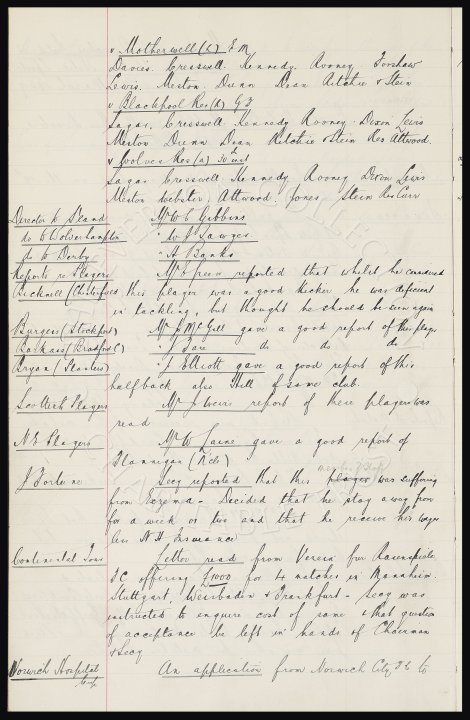 v Motherwell (h) F.M.
Davies. Cresswell. Kennedy. Rooney. Forshaw
Lewis. Meston. Dunn Dean Ritchie & Stein
v Blackpool Res (a) G.3
Sagar. Cresswell. Kennedy Rooney. Dixon. Lewis
Meston Dunn Dean Ritchie & Stein Res Attwood.
v Wolves Res (a) 30 inst
Sagar Cresswell Kennedy Rooney Dixon Lewis
Meston Webster. Attwood. Jones. Stein Res Curr
Director to Stand Mr W C Gibbins
do to Wolverhampton " W J Sawyer
do to Derby " H Banks
Reports re Players Mr E Green reported that whilst he considered
Bicknell (Chesterfield this player was a good thicker he was deficient
in tackling, but thought he should be seen again
Burgess (Stockport) Mr J McGill gave a good report of this player
(Bradford C) J do do do
Bryan (Stanley) J Elliott gave a good report of this
halfback also Hill of same club.
Scottish Players Mr J Weir's report of these players was
read
N.E. Players Mr W Laine gave a good report of
Flannegan
J Fortune Secy reported that this player was suffering
from Eczema - Decided that he stay away from
for a week or two and that he receive his wages
less N.H. Insurance
Continental Tour Letter read from Verein fur Rasenspiele
F.C. offering £1000 for 4 matches in Mannheim.
Stuttgart, Weisbaden & Frankfurt - Secy was
instructed to enquire cost of same & that question
of acceptance be left in hands of Chairman
& Secy
Norwich Hospital An application from Norwich City F.C. to